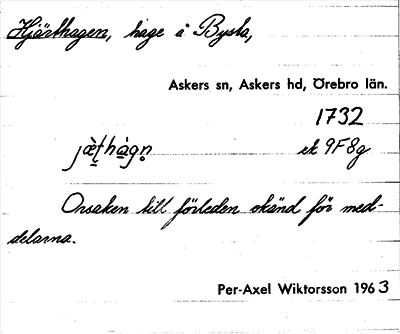 Hjärthagen, hage å Bysta,
Askers sn, Askers hd, Örebro län.
1732
jæ̀t̠hàgn̥ ek 9F8g
Orsaken till förleden okänd för med-
delarna.
Per-Axel Wiktorsson 1963